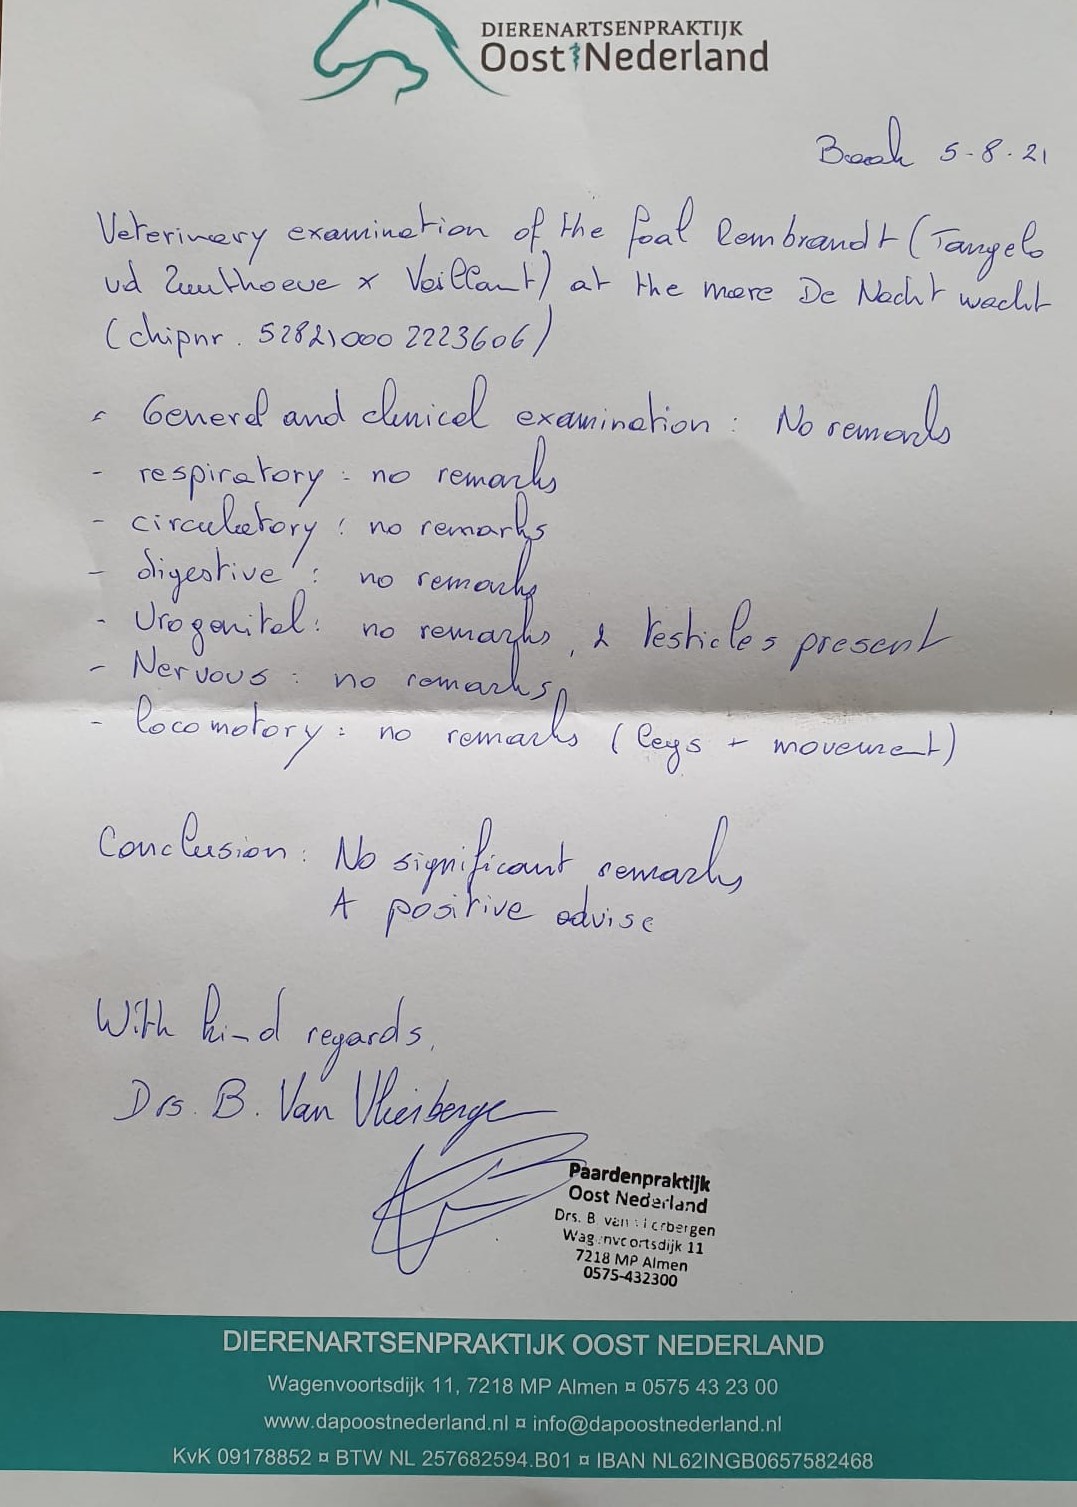 DIERENARTSENPRAKTIJK
Oost Nederland
Baak 5-8-21
Veterinary examination of the foal Rembrandt (Tangelo
vd Zuuthoeve x Vaillant) at the mare De Nachtwacht
(chipnr. 528210002223606)
- General and clinical examination: No remarks
- respiratory: no remarks
- circulatory: no remarks
- digestive: no remarks
- Urogenital: no remarks, 2 testicles present
- Nervous: no remarks
- locomotory: no remarks (legs + movement)
Conclusion: No significant remarks
A positive advise
With kind regards,
Drs. B. Van Vlierberge
Paardenpraktijk
Oost Nederland
Drs. B van
Wagenvoortsdijk 11
7218 MP Almen
0575-432300
DIERENARTSENPRAKTIJK OOST NEDERLAND
Wagenvoortsdijk 11, 7218 MP Almen ¤ 0575 43 23 00
www.dapoostnederland.nl ¤ info@dapoostnederland.nl
KvK 09178852 ¤ BTW NL 257682594.B01 ¤ IBAN NL62INGB0657582468